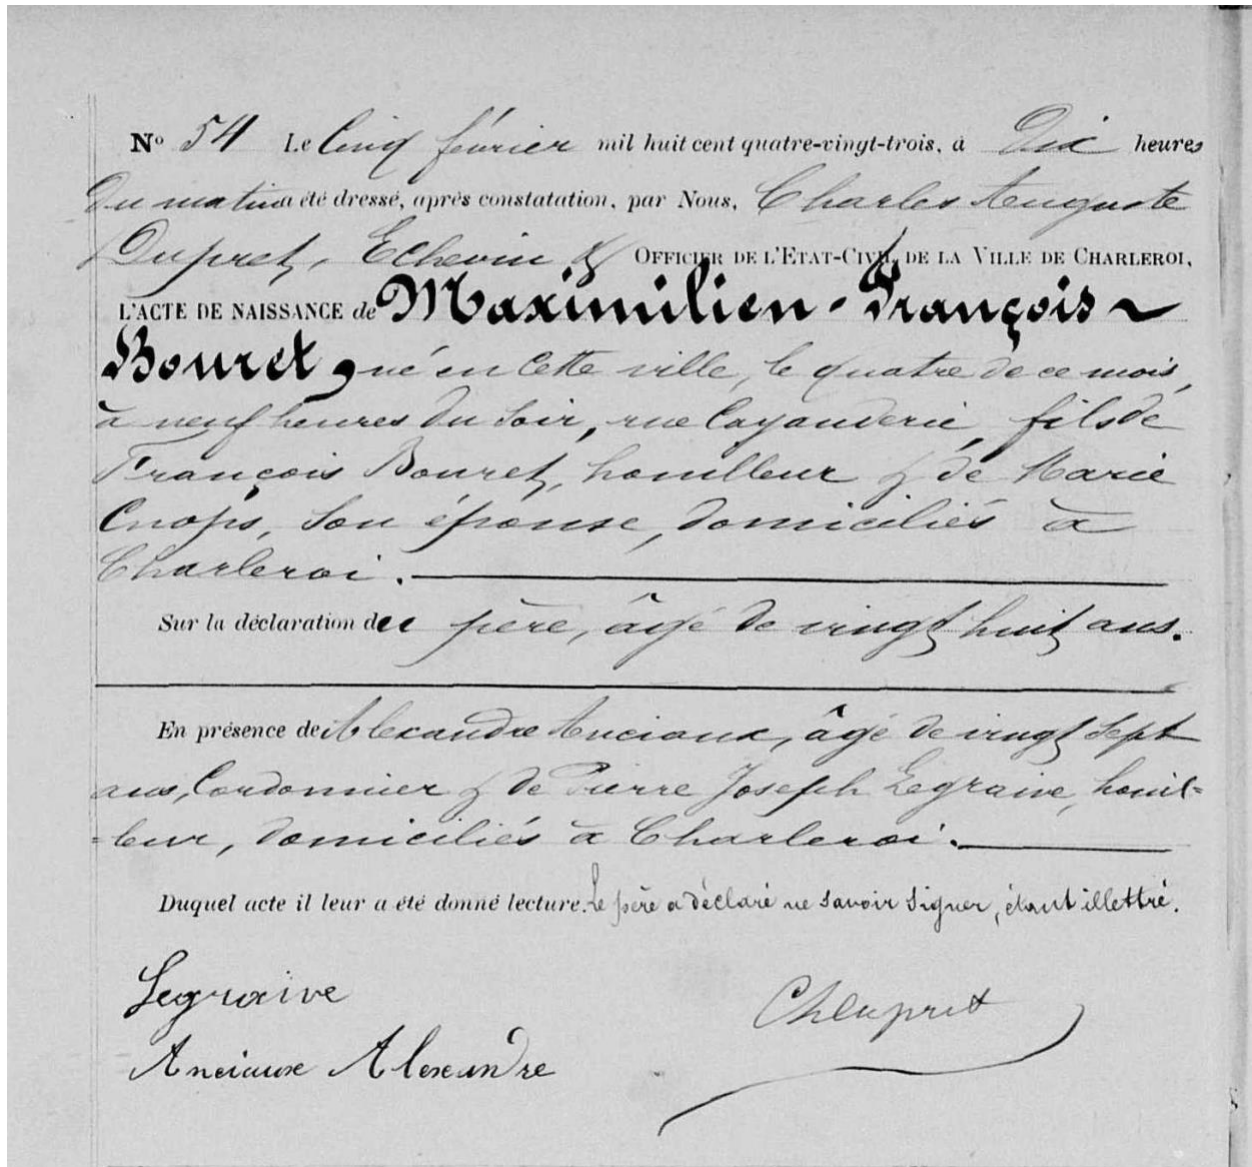 Nº 54 Le Cinq février mil huit cent quatre-vingt-trois, à Dix heures
Du matin a été dressé, après constatation, par Nous, Charles Auguste
Dupret, Echevin & OFFICIER DE L'ETAT-CIVIL DE LA VILLE DE CHARLEROI,
L'ACTE DE NAISSANCE de Maximilien-François ~
Bouret, né en Cette ville, le quatre de ce mois,
à neuf heures du soir, rue Cayauderie, fils de
François Bouret, houilleur & de Marie
Cnops, Son épouse, domiciliés à
Charleroi.
Sur la déclaration du père, âgé de vingt huit ans.
En présence de Alexandre Anciaux, âgé de vingt Sept
ans, Cordonnier & de Pierre Joseph Legraive, houil=
=leur, domiciliés à Charleroi.
Duquel acte il leur a été donné lecture. Le père a déclaré ne savoir signer, étant illettré.
Legraive
Ch Dupret
Anciaux Alexandre